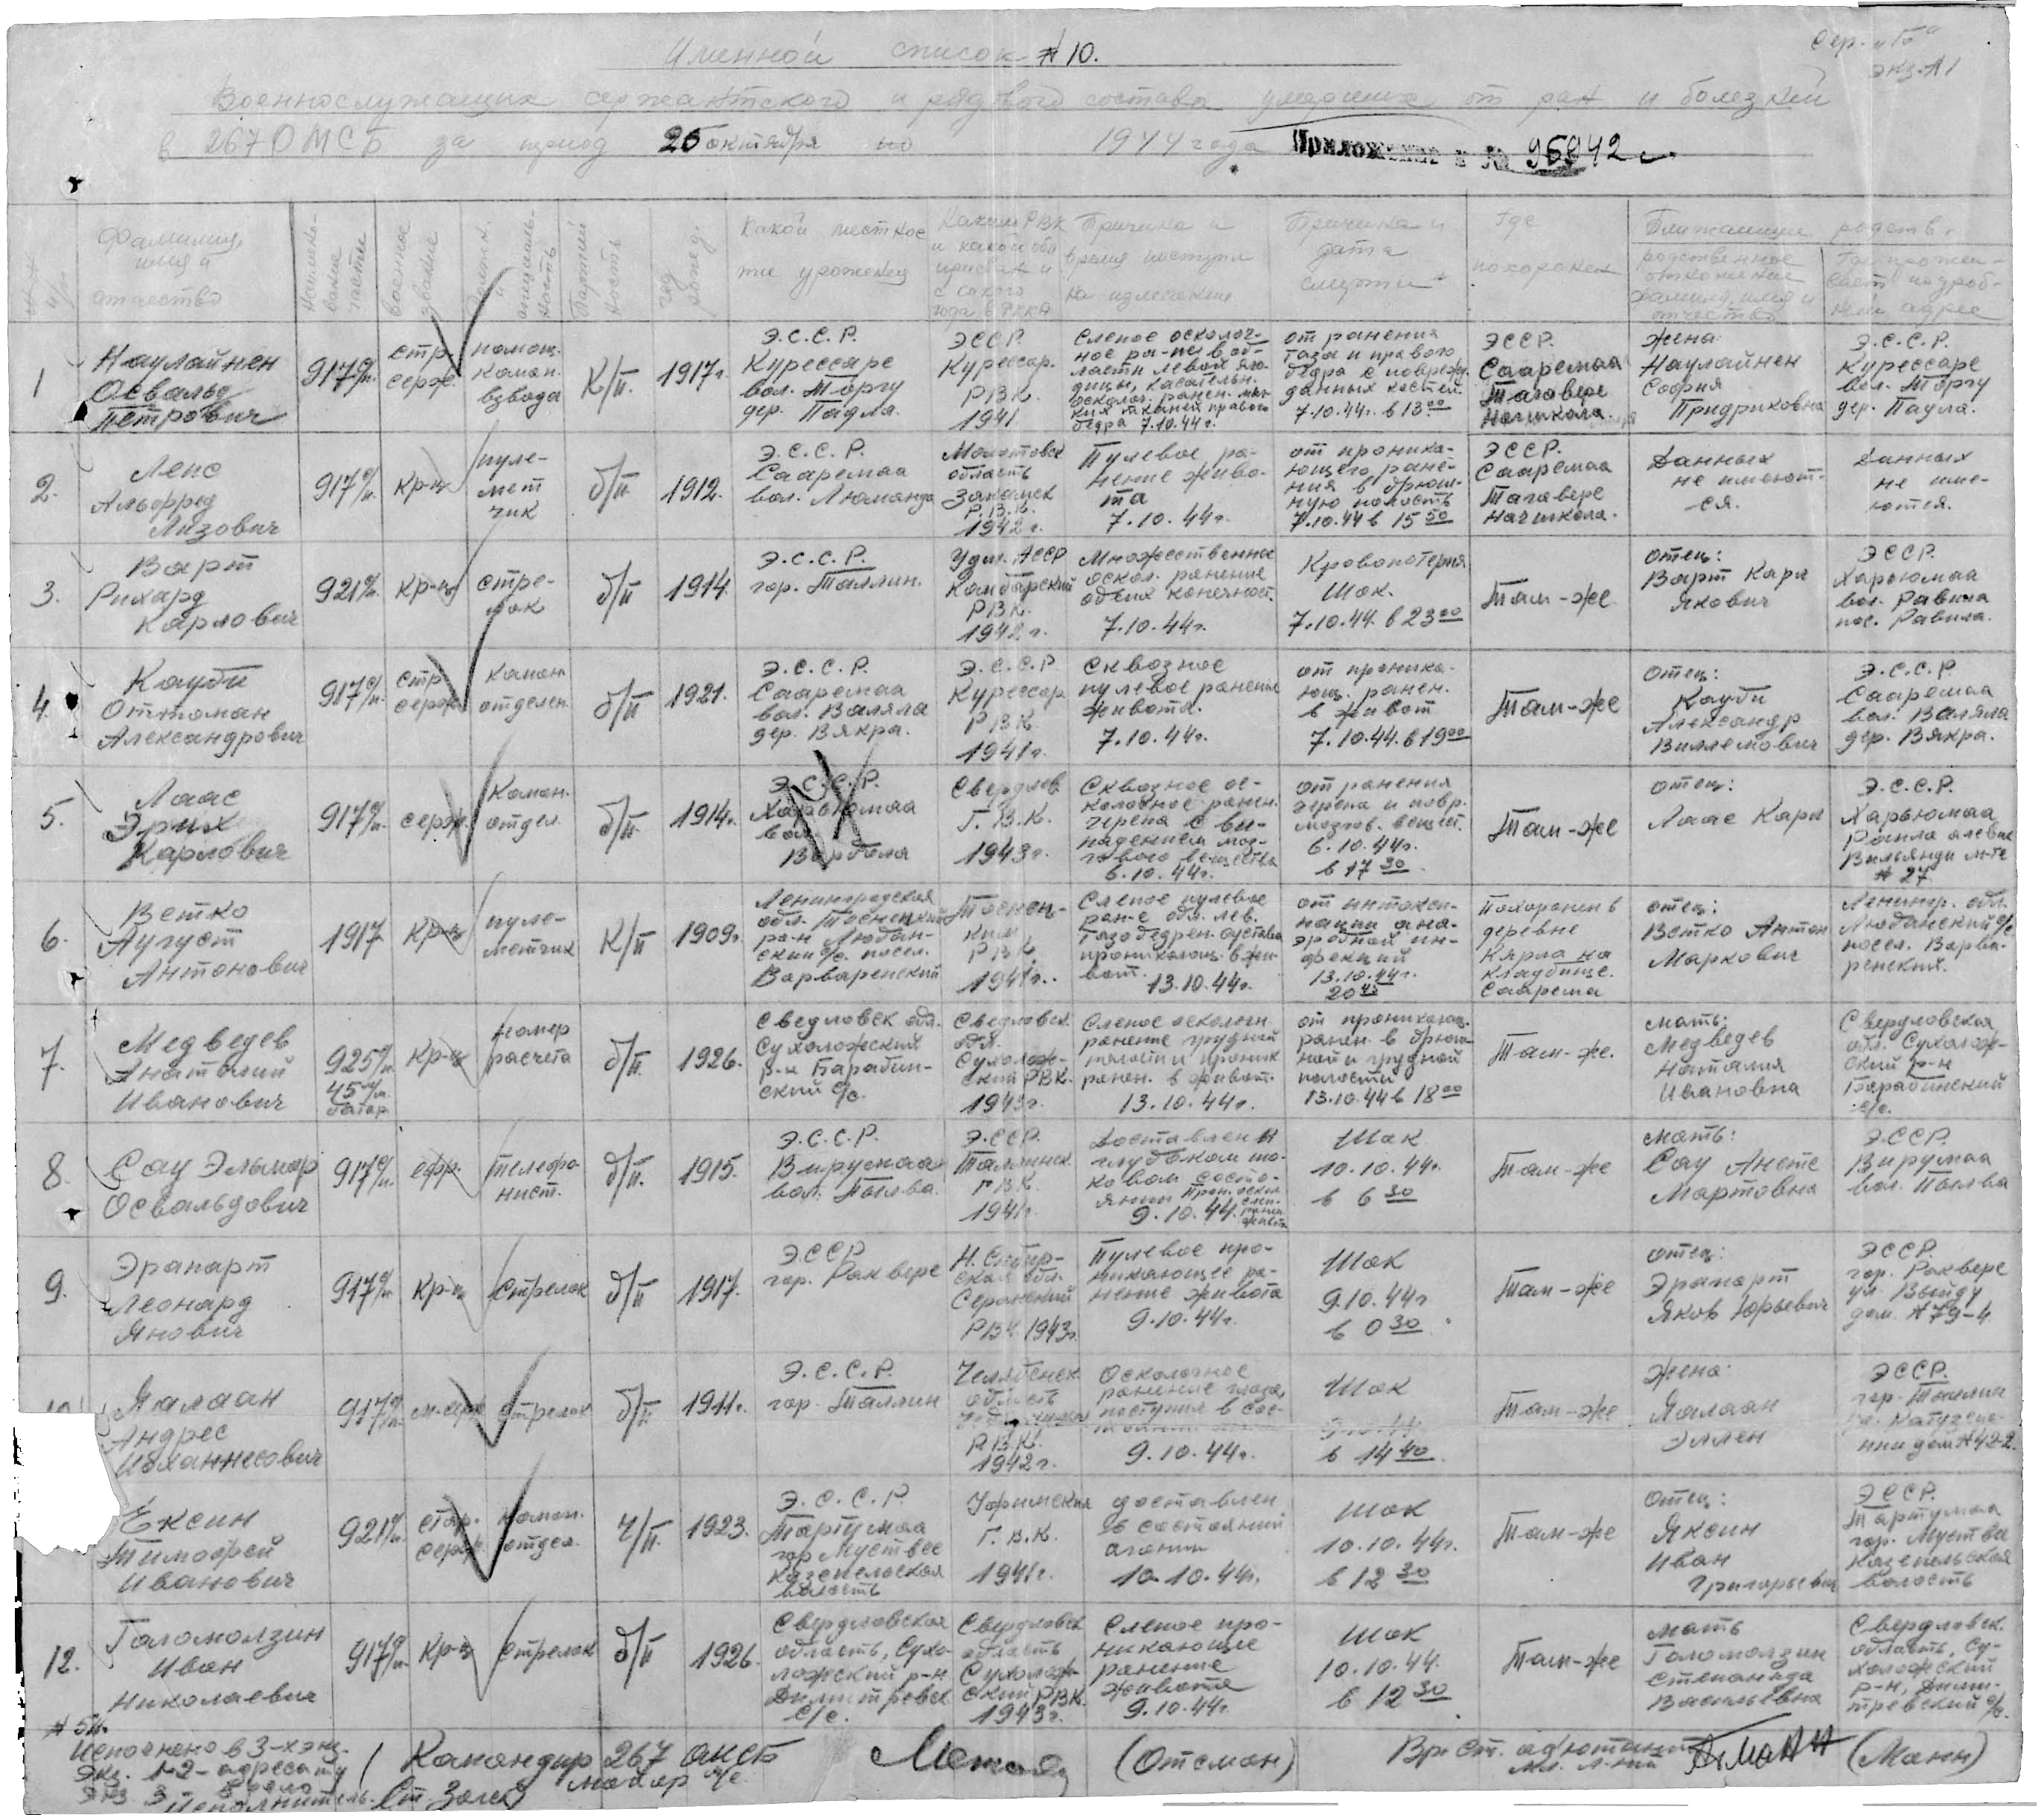 Сер. "Б"
экз. № 1
Именной список № 10.
Военнослужащих сержантского и рядового состава умерших от ран и болезней
в 267 ОМСБ за период 25 октября по 1944 года Приложение к № 95942с
Фамилия, имя и отчество
Наименование части
Военное звание
Партийность
год рожд.
Какой местности уроженец
Каким РВК и какой обл призван и с какого года в РККА
Причина и время поступл на излечение
Причина и дата смерти
Где похоронен
Ближайшие родств.
родственное отношение фамилия, имя и отчество
Где прожи-вает подроб-ный адрес
1 Наулайнен Освальд Петрович
917 с/п. стр. серж. помощ. коман. взвода К/п. 1917г.
Э.С.С.Р. Курессаре вол. Торгу дер. Падла.
ЭССР. Курессар. Р.В.К. 1941
Слепое осколоч-ное ра-ние в об-ласти левой яго-дицы, касательн. осколоч. ранен. мяг-ких тканей правого бедра 7.10.44г.
от ранения таза и правого бедра с поврежд. данных костей. 7.10.44г. в 13 00
ЭССР. Сааремаа Тагавере Нач.школа.
жена: Наулайнен София Придриковна
Э.С.С.Р. Курессаре вол. Торгу дер. Паула.
2. Лепс Альфред Лизович
917 с/п. кр-ц пуле-мет чик б/п 1912.
Э.С.С.Р. Сааремаа вол. Люманда
Молотовск область Закамск Р.В.К. 1942г.
Пулевое ра-нение живо-та 7.10.44г.
от проника-ющего ране-ния в брюш-ную полость 7.10.44 в 15 50
ЭССР. Сааремаа Тагавере нач.школа.
Данных не имеют-ся.
Данных не име-ются.
3. Варт Рихард Карлович
921 с/п. кр-ц стре-лок б/п 1914.
Э.С.С.Р. гор. Таллин.
Удм. АССР Камбарский РВК. 1942г.
Множественное оскол. ранение обеих конечност. 7.10.44г.
Кровопотеря Шок. 7.10.44. в 23 00
Там-же
отец: Варт Карл Якович
ЭССР. Харьюмаа вол. Равила пос. Равила.
4. Кауби Оттоман Александрович
917 с/п. стр серж. коман отделен. б/п 1921.
Э.С.С.Р. Сааремаа вол. Валяла дер. Вякра.
Э.С.С.Р Курессар РВК. 1941г.
Сквозное пулевое ранение живота. 7.10.44г.
от проника-ющ. ранен. в живот 7.10.44. в 19 00
Там-же
отец: Кауби Александр Виллемович
Э.С.С.Р. Сааремаа вол. Валяла дер. Вякра.
5. Лаас Эрих Карлович
917 с/п. серж. Коман. отдел. б/п. 1914г.
Э.С.С.Р. Харьюмаа вол. Вардола
Свердлов Г.В.К. 1943г.
Сквозное ос-колочное ранен. черепа с вы-падением моз-гового вещества 6.10.44г.
от ранения черепа и повр. мозгов. вещест. 6.10.44г. в 17 30
Там-же
отец: Лаас Карл
Э.С.С.Р. Харьюмаа Рапла алевик Вильянди м-те № 27
6. Ветко Аугуст Антонович
1917 кр-ц пуле-метчик К/п 1909г.
Ленинградская обл. Тосненский ра-н Любан-ский с/с. посел. Варваренский
Тоснен-ким РВК 1941г.
Слепое пулевое ран-е обл. лев. тазобедрен. сустава проникающ. в жи-вот. 13.10.44г.
от интокси-кации ана-эробной ин-фекции 13.10.44г. 20 45
Похоронен в деревне Кярла на кладбище. Саарема
отец: Ветко Антон Маркович
Ленингр. обл. Любанский с/с. посел. Варва-ренский.
7. Медведев Анатолий Иванович
925 с/п. 45 м/м. батар номер расчета кр-ц б/п. 1926.
Свердловск обл. Сухоложский р-н Барабин-ский с/с.
Свердловск. обл. Сухолож-ский РВК. 1943г.
Слепое осколочн ранение грудной полости и проник ранен. в живот. 13.10.44г.
от проникающ. ранен. в брюш-ной и грудной полости 13.10.44 в 18 00
Там-же.
мать: Медведев Наталия Ивановна
Свердловская обл. Сухолож-ский р-н Барабинский с/с.
8. Сау Эльмар Освальдович
917 с/п. ефр. телефо-нист. б/п. 1915.
Э.С.С.Р. Вирумаа вол. Пылва.
Э.ССР. Таллинск. ГВК. 1941г.
Доставлен в глубоком шо-ковом состо-янии 9.10.44.
Шок 10.10.44г. в 6 30
Там-же
мать: Сау Анете Мартовна
Э.ССР. Вирумаа вол. Пылва
9. Эрапарт Леонард Янович
917 с/п. кр-ц стрелок б/п 1917.
ЭССР гор. Раквере
Н.Сибир-ская обл. РВК 1943г.
Пулевое про-никающее ра-нение живота 9.10.44г.
Шок 9.10.44г в 0 30.
Там-же
отец: Эрапарт Яков Юрьевич
ЭССР. гор. Раквере ул. Выйду дом. № 79-4
Ялаан Андрес Иоханнесович
917 с/п. м-серж стрелок б/п 1911г.
Э.С.С.Р. гор. Таллин
Челябинск. область РВК. 1942г.
Осколочное ранение глаза, поступил в сос- 9.10.44г.
Шок 9.10.44 в 14 40.
Там-же
жена: Ялаан Эллен
ЭССР. гор. Таллин дом № 42-2.
Ексин Тимофей Иванович
921 с/п. стар. серж. коман. отдел. ч/п. 1923.
Э.С.С.Р. Тартумаа гор Муствее Казепельская волость
Уфимский Г.В.К. 1941г.
доставлен в состоянии агонии 10.10.44г.
шок 10.10.44г. в 12 30
Там-же
отец: Яксин Иван Григорьевич
ЭССР. Тартумаа гор. Муствее Казепельская волость
12. Голомолзин Иван Николаевич
917 с/п. кр-ц стрелок б/п 1926.
Свердловская область, Сухо-ложский р-н Дмитровск с/с.
Свердловск область Сухолож-ский РВК. 1943г.
Слепое про-никающие ранение живота 9.10.44г.
шок 10.10.44. в 12 30
Там-же
мать Голомолзин Степанида Васильевна
Свердловск. область, Су-холожский р-н, Дмит-ревский с/с.
Исполнено в 3-х экз.
Экз. 1-2 - адресату
Экз 3 - в дело
Исполнитель.
Командир 267 омсб майор м/с (Отсман)
Вр. Ст. адъютант мл. л-нт (Манн)